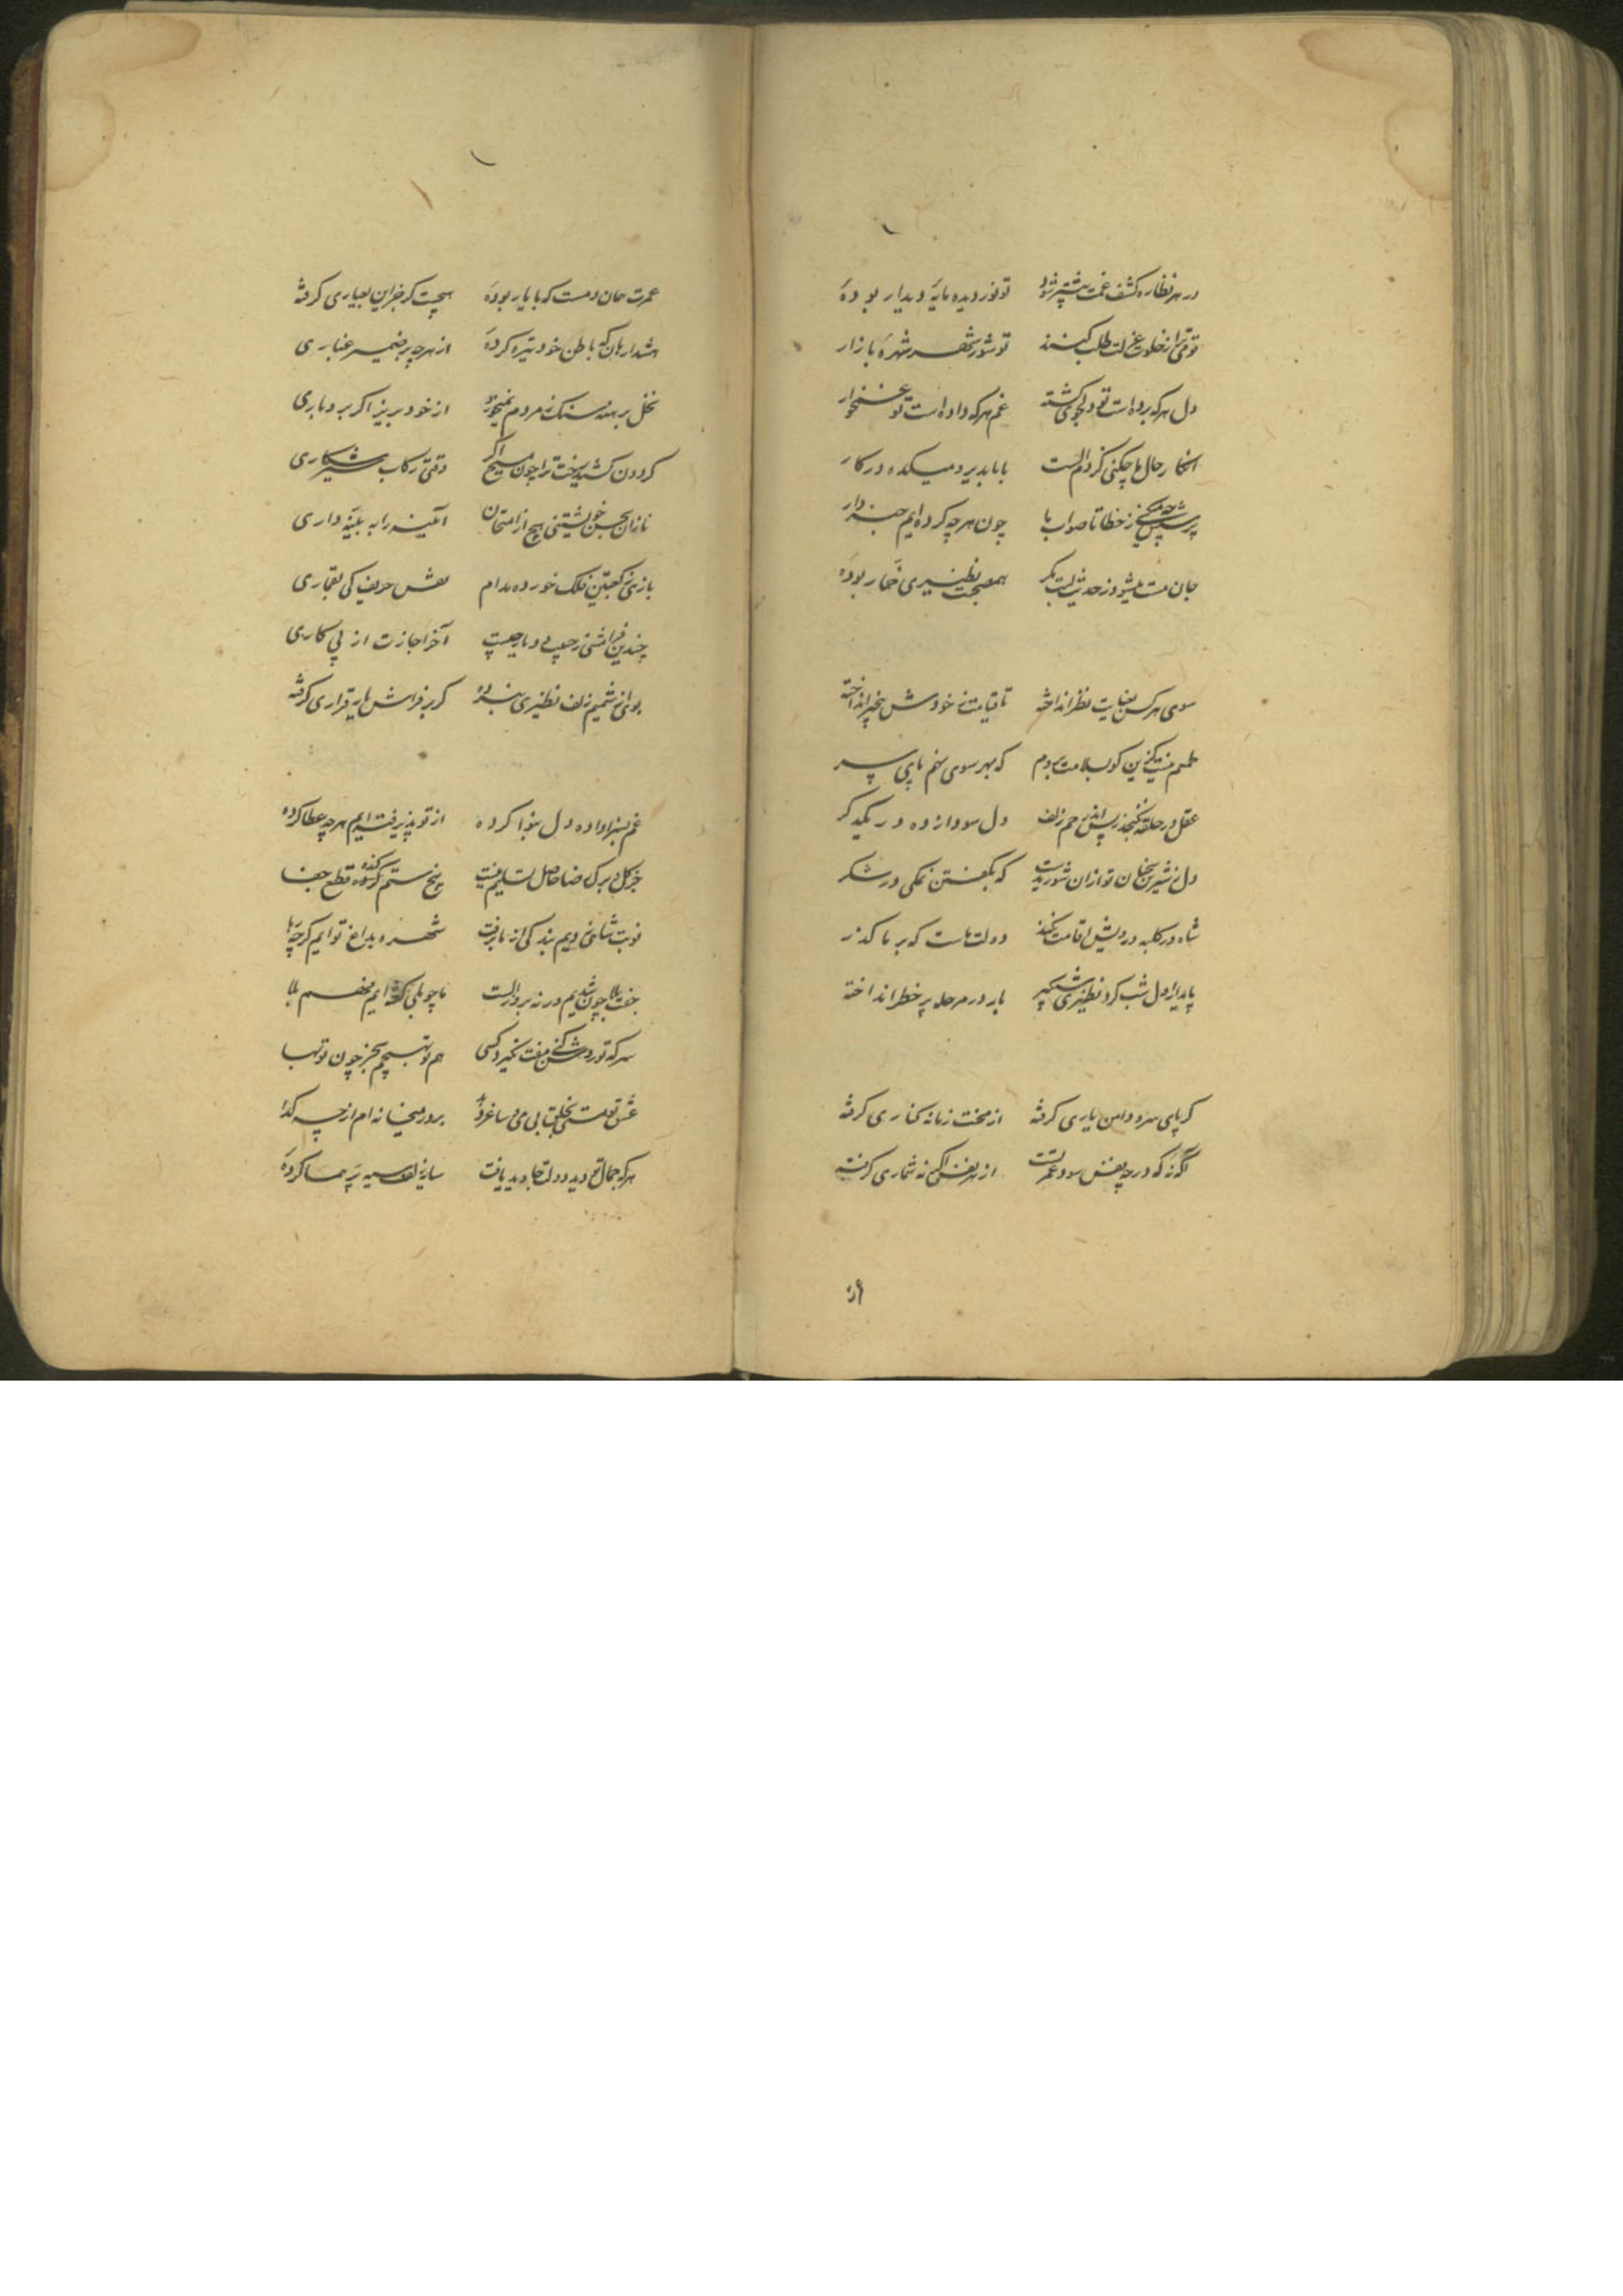 در هر نظاره کشف غمت بیشتر شود تو نور دیده مایهٔ دیدار بودهٔ
قومی ترا ز خلوت عزلت طلب کنند تو شور شهر و شهرهٔ بازار
دل هر که برده است تو دلجوی گشته غم هر که داده است تو غمخوار
انکار حال ما چکنی کز دم الست با ما بدیر و میکده در کار
پرسش چه میکنی ز خطا تا صواب ما چون هر چه کرده ایم خبردار
جان مست میشود ز حدیث لبت مگر همصحبت نظیری خمار بودهٔ
سوی هر کس بعنایت نظر انداخته تا قیامت ز خودش بیخبر انداخته
طمعم نیست کزین کو بسلامت بروم که بهر سوی نهم پای سر
عقل در حلقه نگنجد ز بس اندر خم زلف دل سودازده در یکدگر
دل ز شیرین سخنان تو ازان شوریدست که بگفتن نمکی در شکر
شاه در کلبه درویش اقامت نکند دولت ماست که بر ما گذر
پا بدین از دل شب کرد نظیری شبگیر بار در مرحله پر خطر انداخته
گر پای سرو و دامن یاری گرفته از بخت زمانه کناری گرفته
آگه نهٔ که در چه نفس سود عمر تست از هر نفس اگر نه شماری گرفته
عمرت همان دمست که با یار بودهٔ هیچست گر جز این بعیاری گرفته
هشدار هان که باطن خود تیره کردهٔ از هر چه بر ضمیر غباری
نخل برهنه سنگ ز مردم نمیخورد از خود بریز اگر بر و باری
گردون کشید رخت ترا چون مسیح اگر وقتی رکاب شیر شکاری
نازان بحسن خویشتنی هیچ از امتحان آئینه را به آینه داری
بازی ز کعبتین فلک خورده مدام نقش حریف کی بقماری
چندین فرامشی ز حبیب و دیار چیست آخر اجازت از پی کاری
بوئی ز شمیم زلف نظیری نبرده گر بر فراش یار قراری گرفته
غم بسزا داده دل بنوا کرده از تو پذیرفته ایم هر چه عطا کرده
جز گل و برگ رضا حاصل تسلیم نیست بیخ ستم کنده قطع جفا
نوبت شاهی زدیم بندگی از ما برفت شهره بداغ تو ایم گرچه رها
جفت بلا چون شدیم ورنه بروز الست ما چو بلی گفته ایم فهم بلا
سر که تو رد کنی مفت نگیرد کسی هم تو تسبیحم بخر چون تو بها
عشق تو مستی بخلق بی می و ساغر دهد بر در میخانه ام از چه گدا
هر که جمال تو دید دولت جاوید یافت سایهٔ زلف سیه پر هما کردهٔ